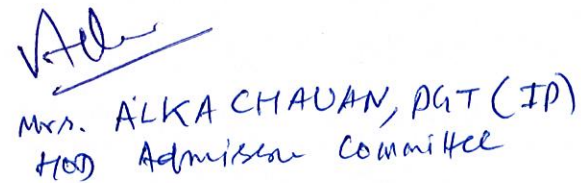 Mrs. ALKA CHAUAN, PGT (IP)
HOD Admission Committee